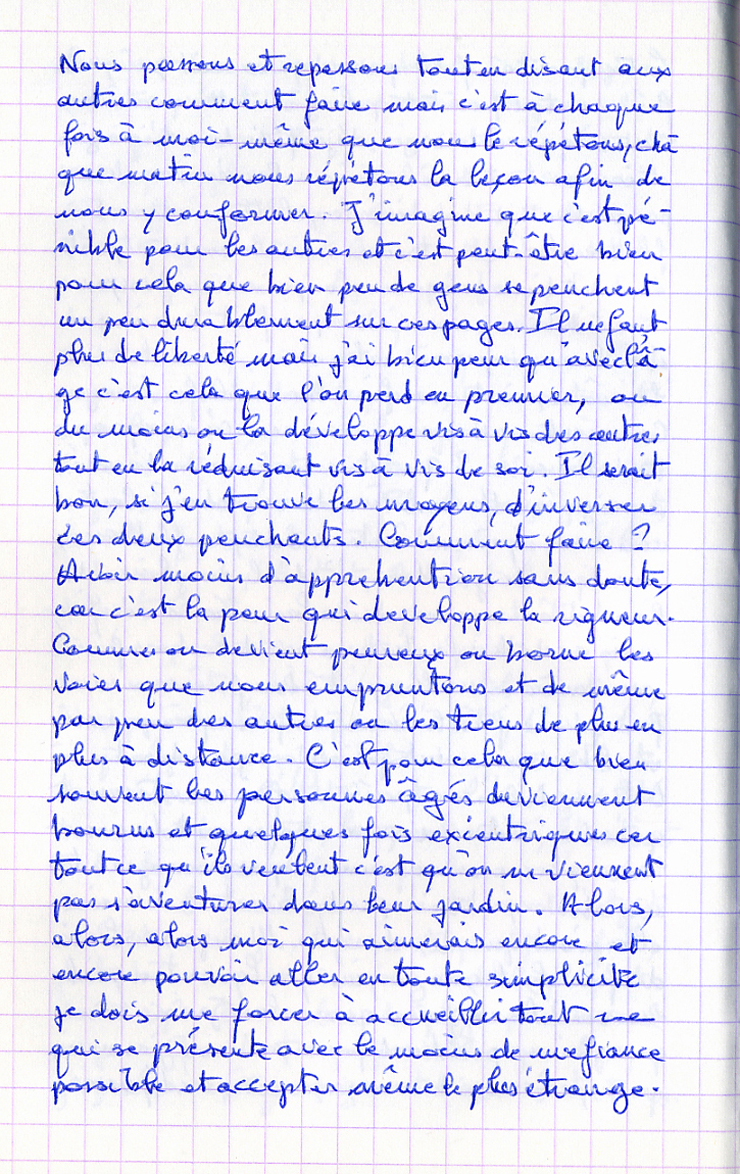 Nous passons et repassons tout en disant aux
autres comment faire mais c'est à chaque
fois à moi-même que nous le répétons, cha
que matin nous répétons la leçon afin de
nous y conformer. J'imagine que c'est pé-
nible pour les autres et c'est peut-être bien
pour cela que bien peu de gens se penchent
un peu durablement sur ces pages. Il ne faut
plus de liberté mais j'ai bien peur qu'avec l'â-
ge c'est cela que l'on perd en premier, ou
du moins on la développe vis à vis des autres
tout en la réduisant vis à vis de soi. Il serait
bon, si j'en trouve les moyens, d'inverser
ces deux penchants. Comment faire ?
Avoir moins d'apprehention sans doute,
car c'est la peur qui developpe la rigueur.
Comme on devient peureux on borne les
voies que nous empruntons et de même
par peur des autres on les tiens de plus en
plus à distance. C'est pour cela que bien
souvent les personnes âgés deviennent
bourrus et quelques fois excentriques car
tout ce qu'ils veulent c'est qu'on ne viennent
pas s'aventurer dans leur jardin. Alors,
alors, alors moi qui aimerais encore et
encore pouvoir aller en toute simplicité
je dois me forcer à accueillir tout ce
qui se présente avec le moins de mefiance
possible et accepter même le plus étrange.